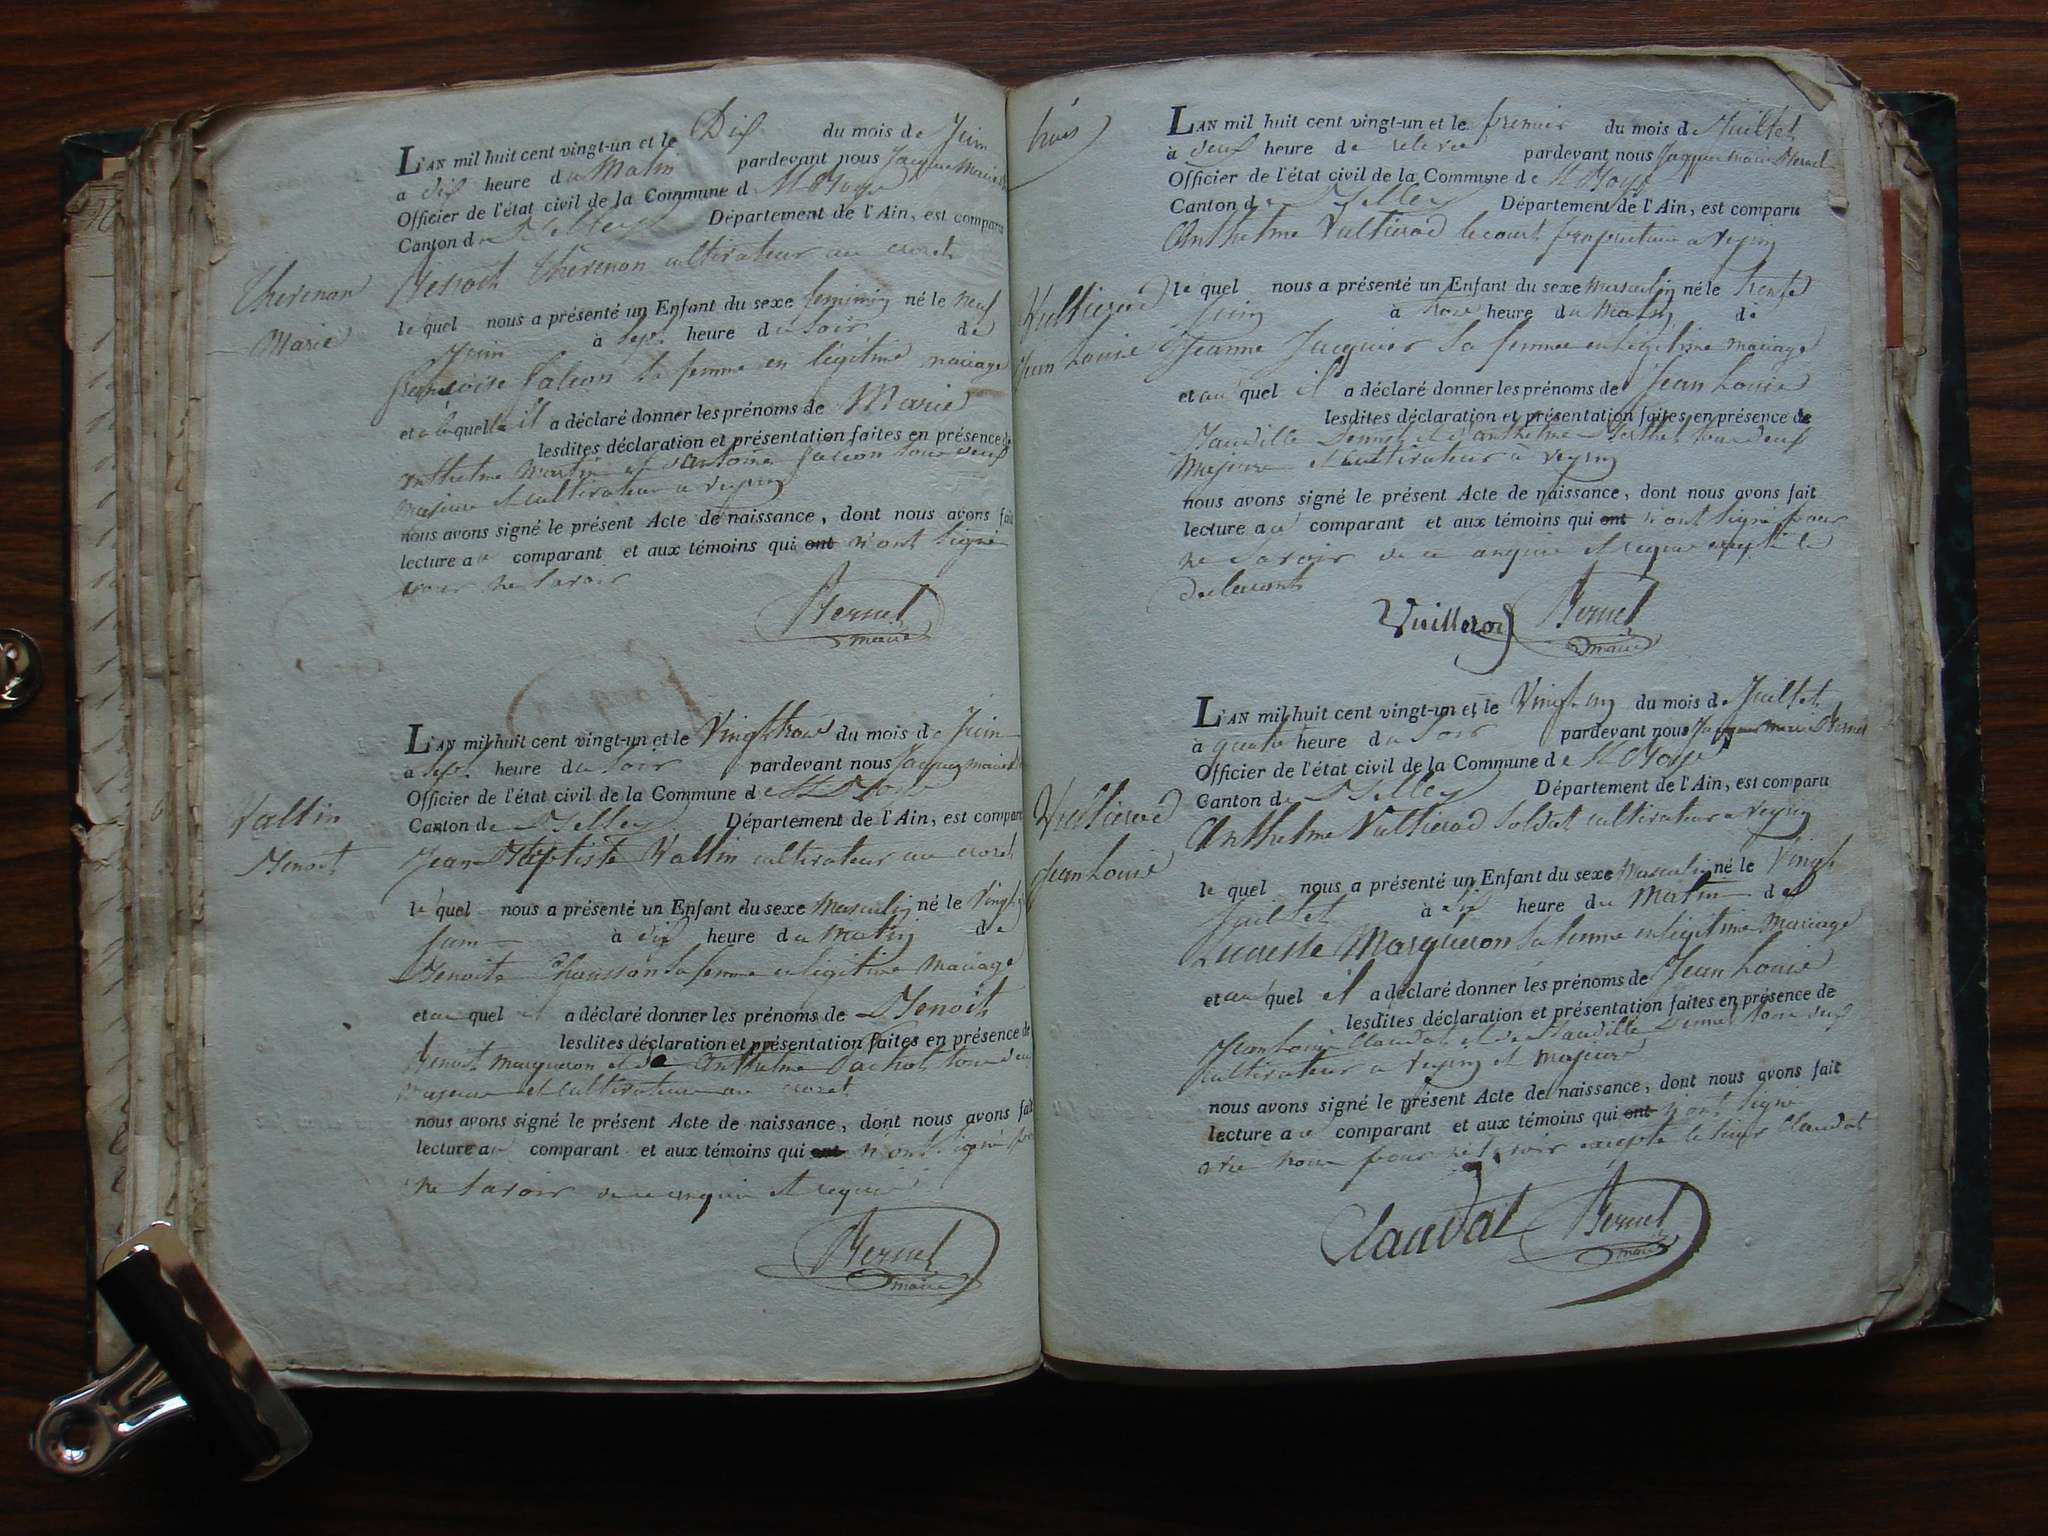 L'AN mil huit cent vingt-un et le Dix du mois de Juin
a dix heure du Matin pardevant nous Jacque Marie
Officier de l'état civil de la Commune de
Canton de Département de l'Ain, est comparu
Benoit Therenon cultivateur au crozet
Therenon
Marie
le quel nous a présenté un Enfant du sexe feminin né le neuf
Juin à sept heure du soir de
françoise falcon sa femme en légitime mariage
et à la quelle il a déclaré donner les prénoms de Marie
lesdites déclaration et présentation faites en présence de
anthelme Martin et d'antoine falcon tous deux
majeure et cultivateur a
nous avons signé le présent Acte de naissance, dont nous avons fait
lecture au comparant et aux témoins qui ont n'ont signé
pour ne savoir
Bernel
maire
L'AN mil huit cent vingt-un et le Vingt trois du mois de Juin
a sept heure du soir pardevant nous Jacque marie
Officier de l'état civil de la Commune de
Canton de Département de l'Ain, est comparu
Jean Baptiste Vallin cultivateur au crozet
Vallin
Benoit
le quel nous a présenté un Enfant du sexe Masculin né le Vingt
à dix heure du matin de
Benoite Chausson sa femme en légitime mariage
et au quel il a déclaré donner les prénoms de Benoit
lesdites déclaration et présentation faites en présence de
Benoit marqueron et de anthelme tous deux
majeure et cultivateur au crozet
nous avons signé le présent Acte de naissance, dont nous avons fait
lecture au comparant et aux témoins qui ont n'ont signé
ne savoir de ce enquis et requis
Bernel
maire
trois
L'AN mil huit cent vingt-un et le premier du mois de Juillet
à deux heure de relevée pardevant nous Jacque marie Bernel
Officier de l'état civil de la Commune de
Canton de Département de l'Ain, est comparu
Anthelme Vultierod proprietaire a
Vultierod
Jean Louis
le quel nous a présenté un Enfant du sexe masculin né le trente
Juin à heure du Matin de
Jeanne Jacquier sa femme en légitime mariage
et au quel il a déclaré donner les prénoms de Jean Louis
lesdites déclaration et présentation faites en présence de
et d'anthelme tous deux
Majeure et cultivateur a
nous avons signé le présent Acte de naissance, dont nous avons fait
lecture au comparant et aux témoins qui ont n'ont signé pour
ne savoir de ce enquis et requis excepté le
declarant
Vuillerod Bernel
maire
L'AN mil huit cent vingt-un et le Vingt un du mois de Juillet
à quatre heure du soir pardevant nous Jacque marie Bernel
Officier de l'état civil de la Commune de
Canton de Département de l'Ain, est comparu
Anthelme Vultierod soldat cultivateur a
Vultierod
Jean Louis
le quel nous a présenté un Enfant du sexe masculin né le Vingt
Juillet à heure du Matin de
Marqueron sa femme en légitime Mariage
et au quel il a déclaré donner les prénoms de Jean Louis
lesdites déclaration et présentation faites en présence de
Jean Louis Claudat et de tous deux
cultivateur a et majeure
nous avons signé le présent Acte de naissance, dont nous avons fait
lecture au comparant et aux témoins qui ont n'ont signé
avec nous pour ne savoir excepté le sieur Claudat
Claudat Bernel
maire